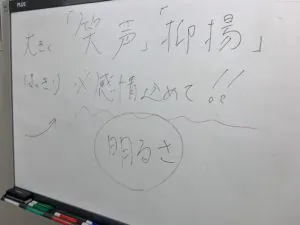 大きく「笑声」「抑揚」
はっきり ※感情込めて!!
明るさ
PLUS